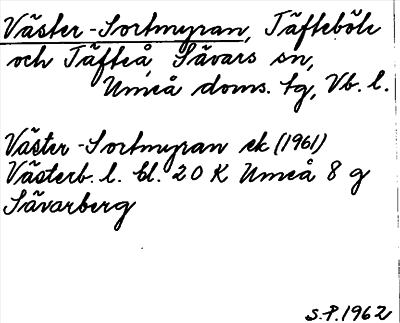 Väster-Sortmyran, Täfteböle
och Täfteå, Sävars sn,
Umeå doms. tg, Vb. l.
Väster-Sortmyran ek (1961)
Västerb. l. bl. 20 K Umeå 8 g
Sävarberg
S.P. 1962